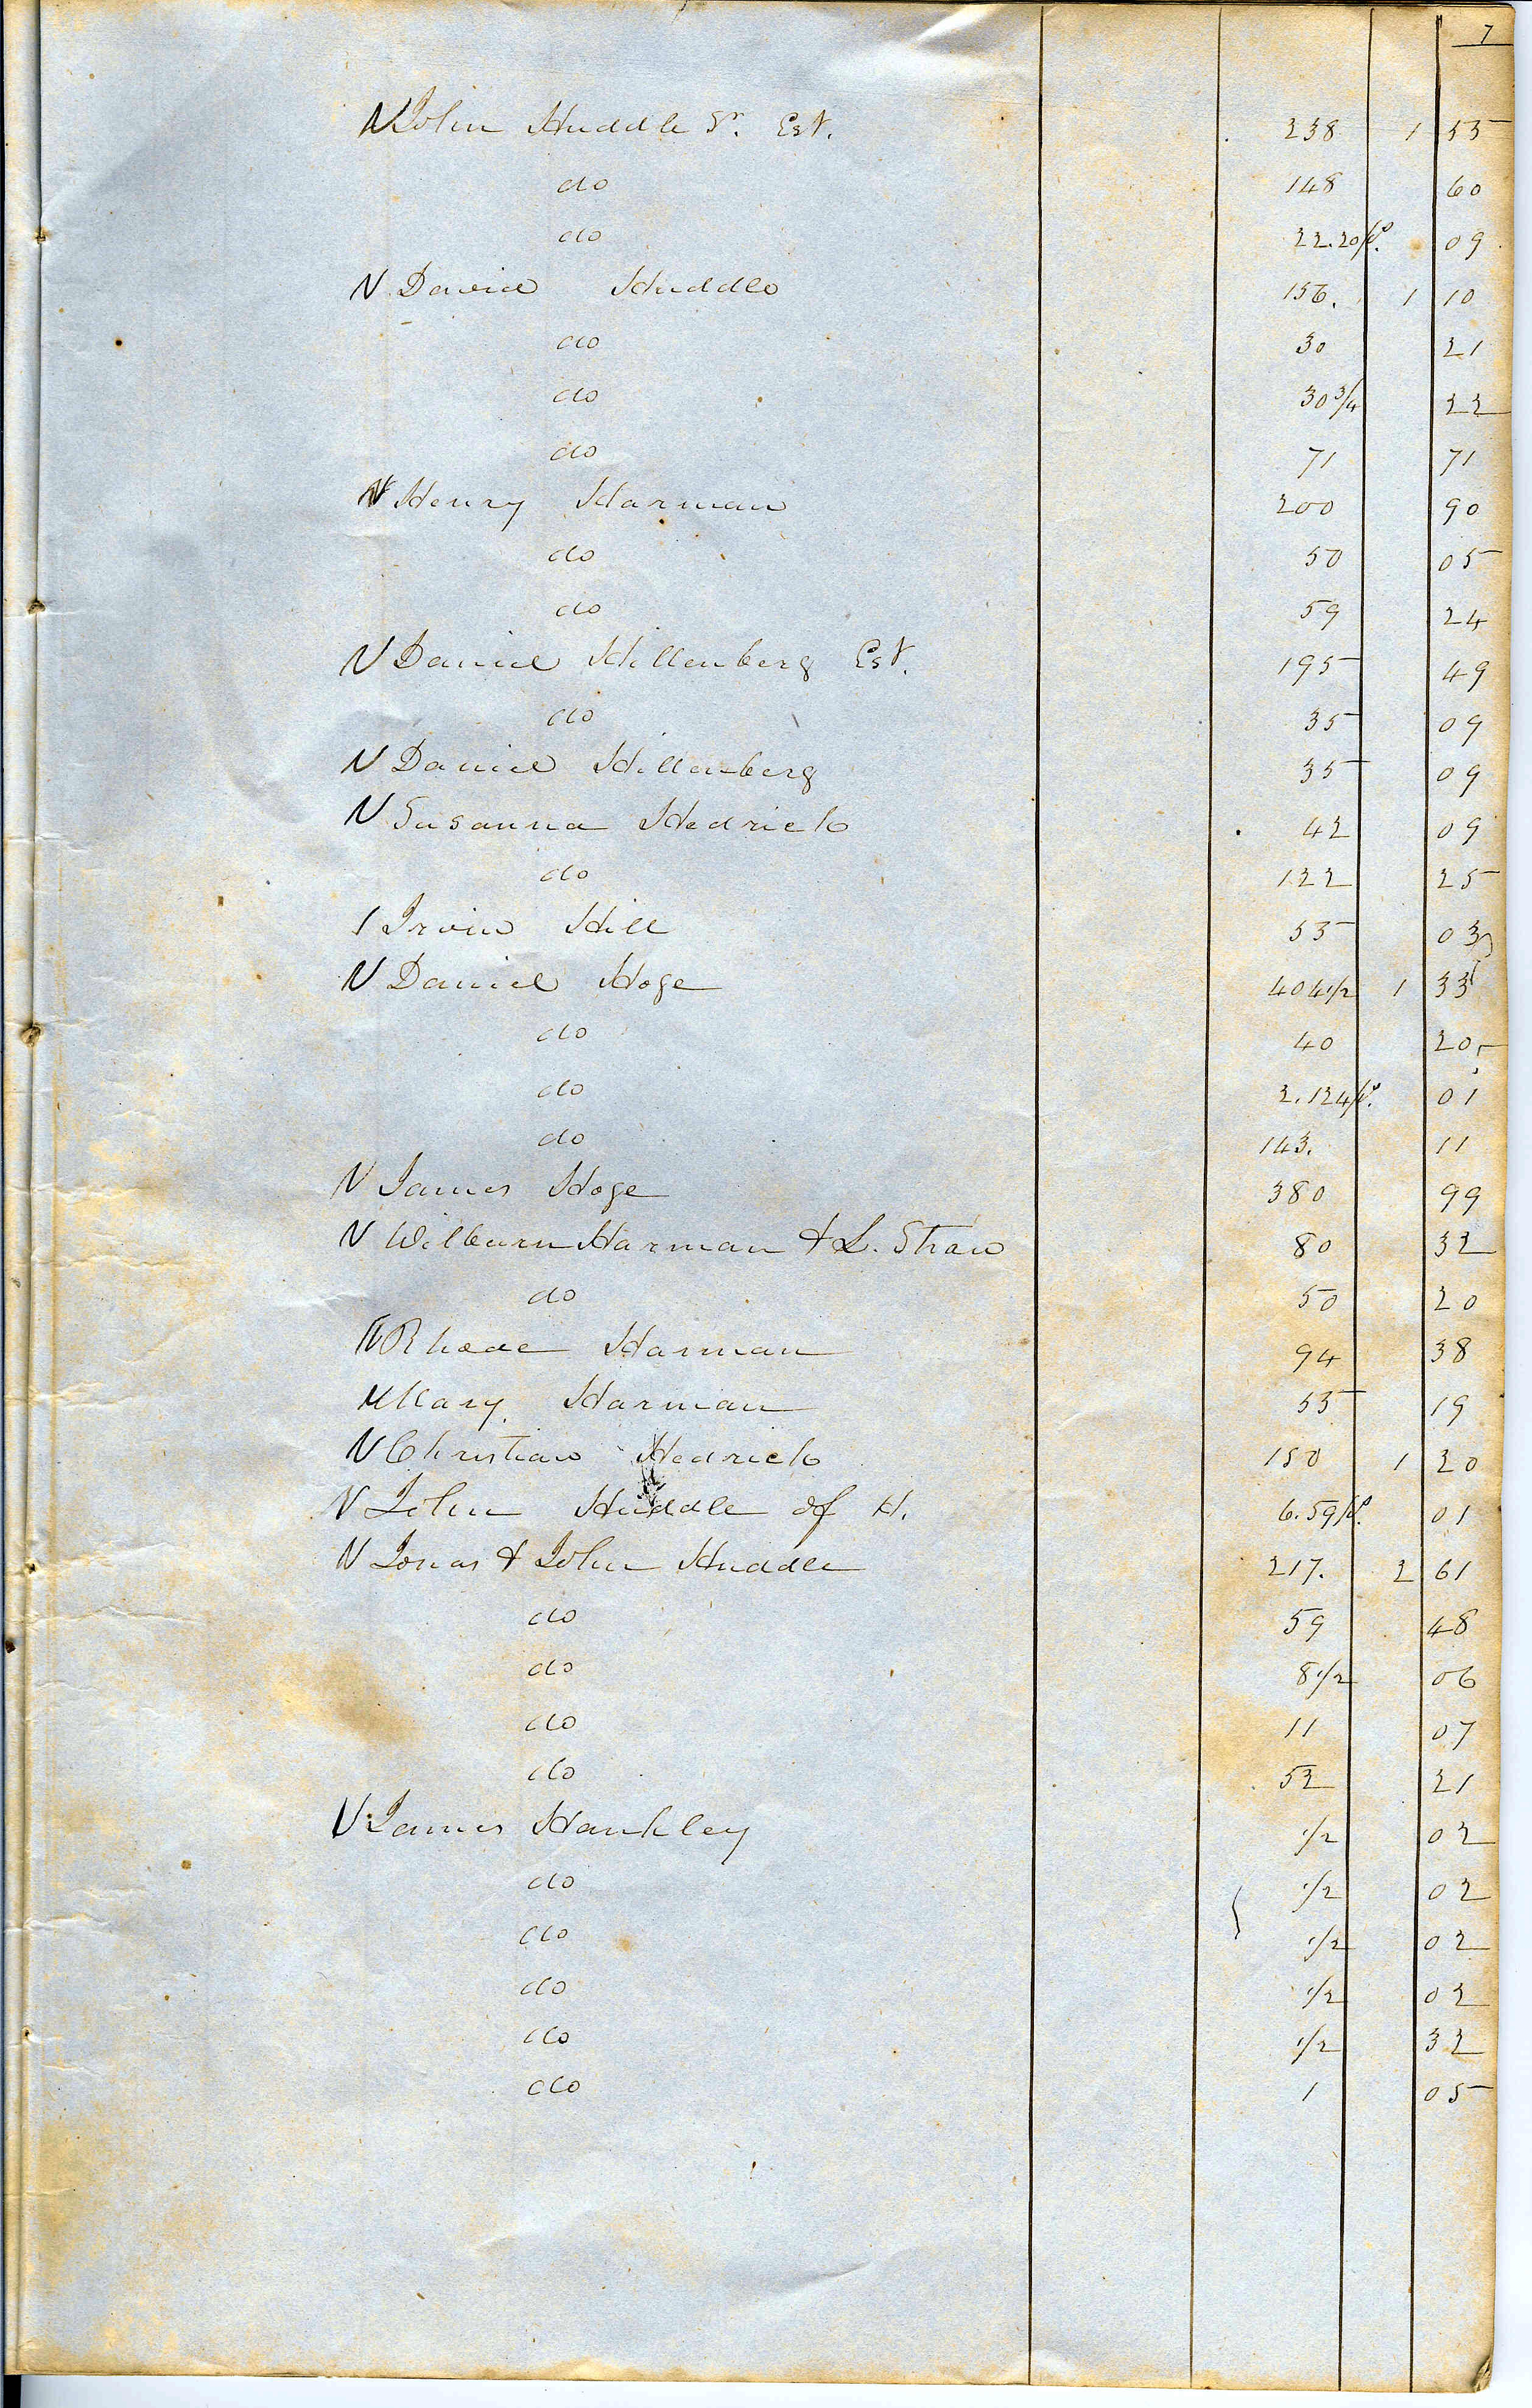 7
John Huddle Sr. Est. 238 1 55
do 148 60
do 22.20/p. 09
David Huddle 156. 1 10
do 30 21
do 30 3/4 22
do 71 71
Henry Harman 200 90
do 50 05
do 59 24
Daniel Hillenberg Est. 195 49
do 35 09
Daniel Hillenberg 35 09
Susanna Hedrick 42 09
do 122 25
Irvin Hill 55 03
Daniel Hoge 404 1/2 1 33
do 40 20
do 2.124/p. 01
do 143. 11
James Hoge 380 99
Wilburn Harman & L. Straw 80 32
do 50 20
Rhoda Harman 94 38
Mary Harman 55 19
Christian Hedrick 150 1 20
John Huddle of H. 6.59/p. 01
Jonas & John Huddle 217. 2 61
do 59 48
do 8 1/2 06
do 11 07
do 52 21
James Hankley 1/2 02
do 1/2 02
do 1/2 02
do 1/2 02
do 1/2 32
do 1 05